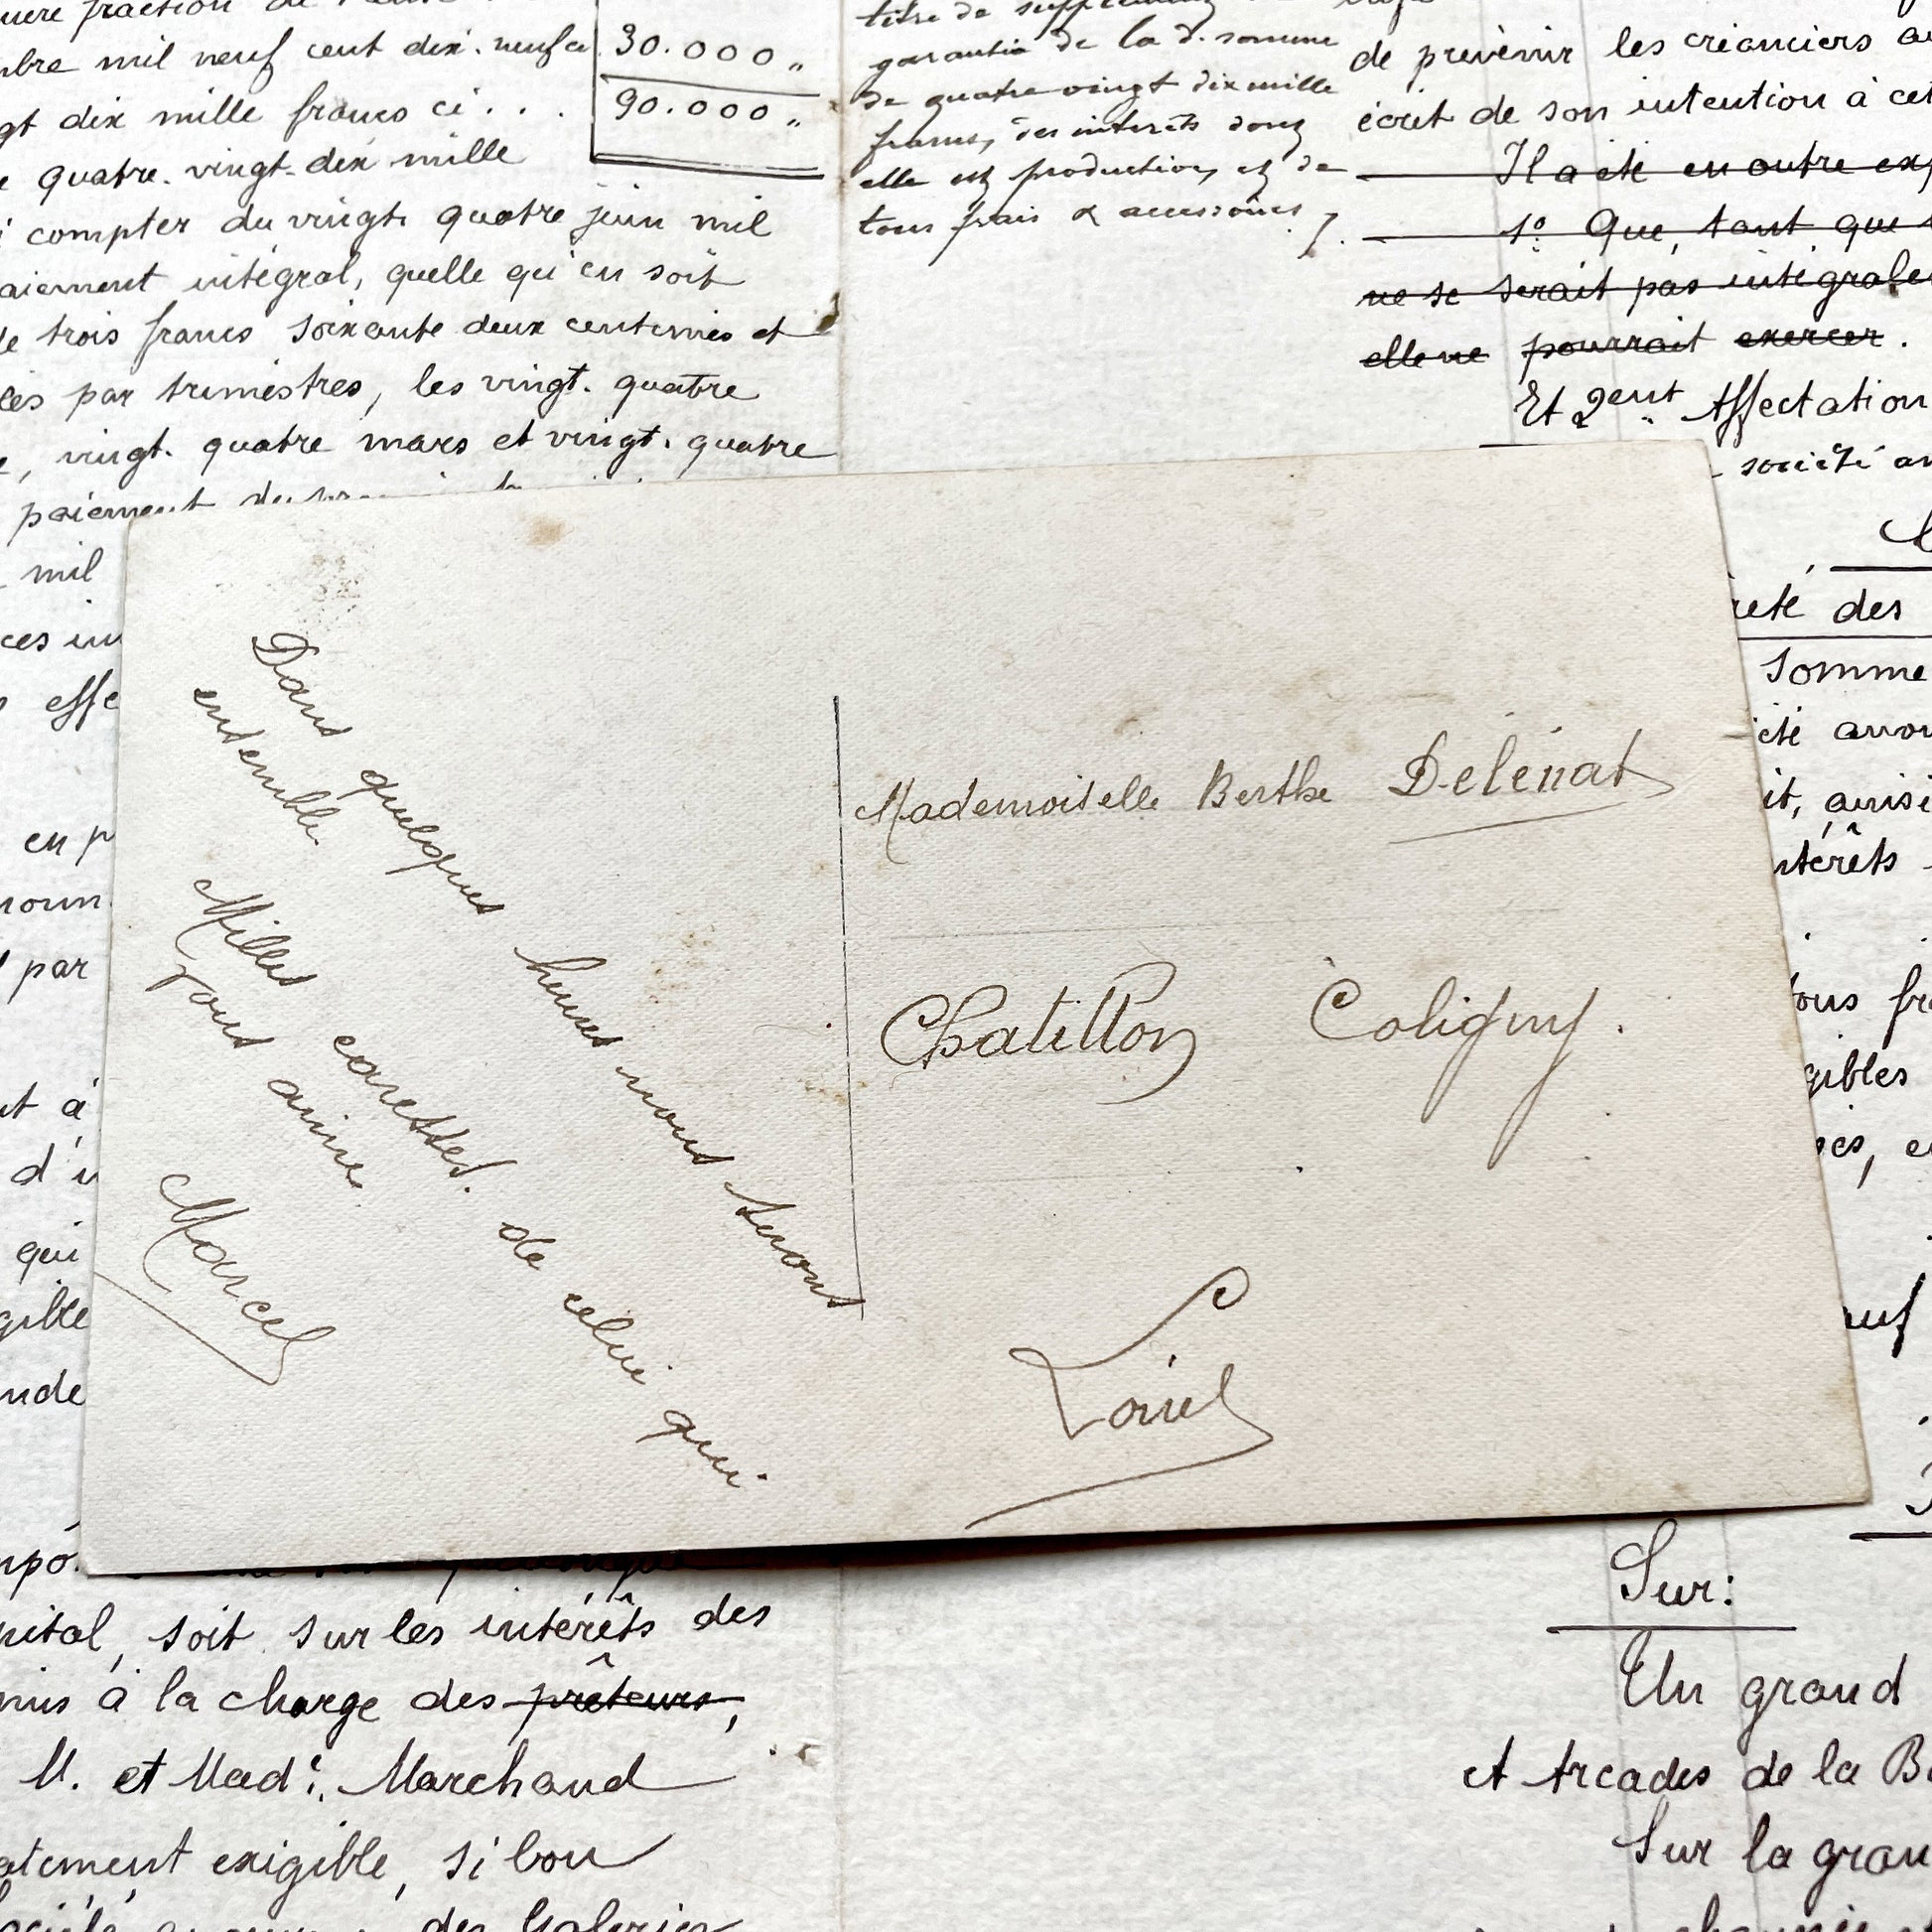 mbre mil neuf cent dix. neuf ci
30.000 „
gt dix mille francs ci . . .
90.000 „
e quatre. vingt-dix mille
compter du vingt quatre juin mil
aiement intégral, quelle qu'en soit
de trois francs soixante deux centimes et
les par trimestres, les vingt. quatre
, vingt. quatre mars et vingt. quatre
paiement
mil
ces in
effe
en p
par
nt à
d'u
qui
gible
nde
titre de supplément
garantie de la d. somme
de quatre vingt dix mille
francs, des intérêts dont
elle est productive, et de
tous frais & accessoires ./.
de prévenir les créanciers
écrit de son intention à cet
Il a été en outre exp
1º. Que, tant que
ne se serait pas intégrale
elle ne pourrait exercer.
Et 2ent. Affectation
société an
reté des
somme
été anon
it, ainsi
ntérêts
tous fr
gibles
Dans quelques heures nous serons
ensemble
Milles caresses. de celui qui
vous aime
Marcel
Mademoiselle Berthe Delénat
Chatillon Coligny.
Loiret
pital, soit sur les intérêts des
mis à la charge des prêteurs,
M. et Made. Marchand
atement exigible, si bon
des Galeries
Sur:
Un grand
et Arcades de la B
Sur la gran